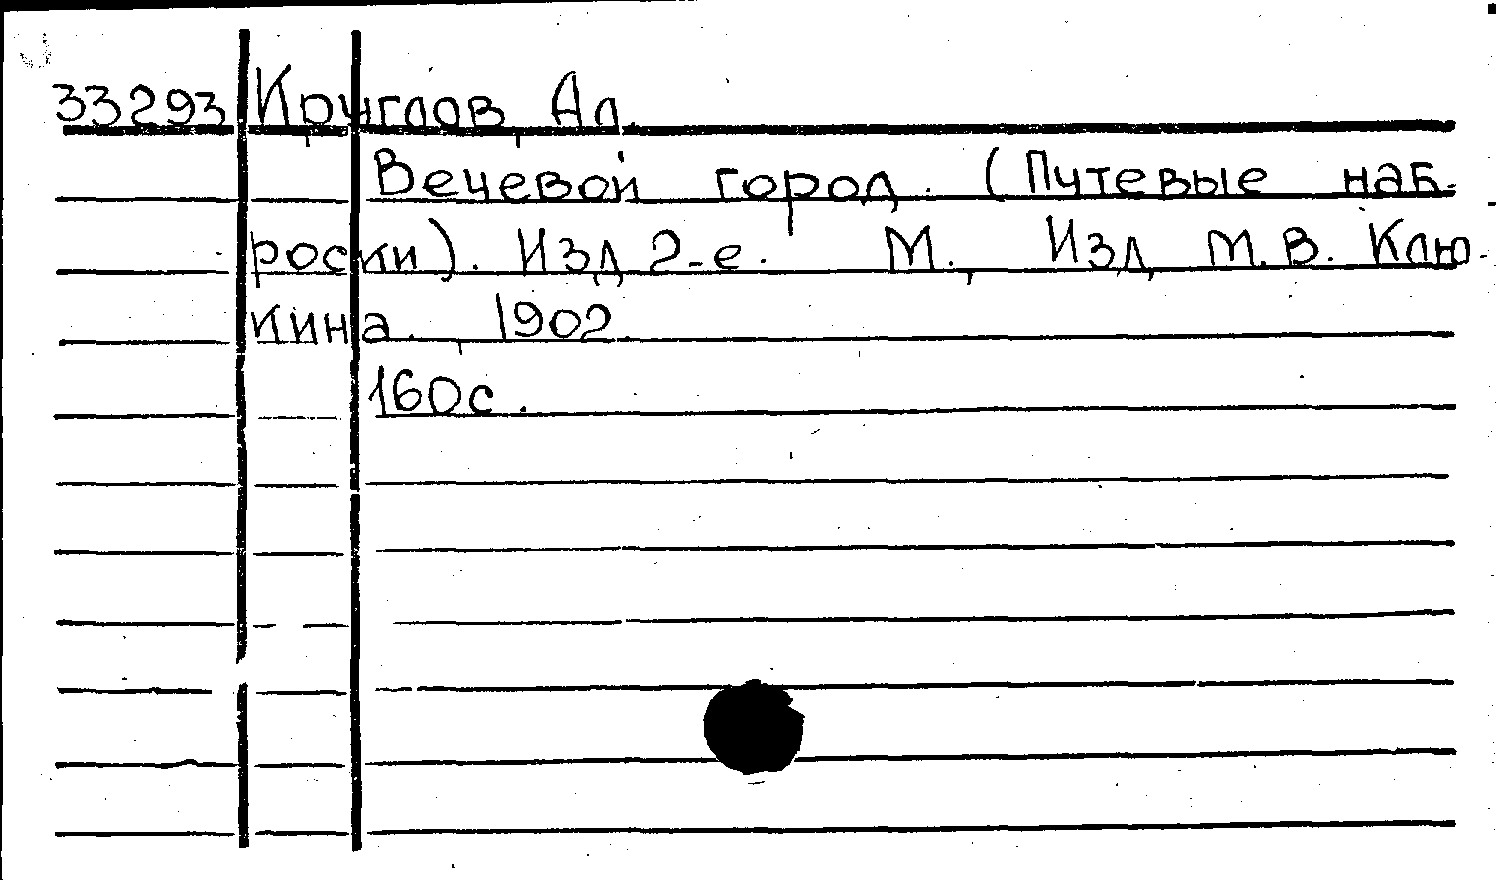 33293 Круглов, Ал.
Вечевой город. (Путевые наб-
роски). Изд. 2-е. М., Изд. М.В. Клю-
кина, 1902.
160с.